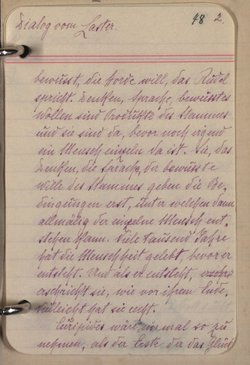 Dialog vom Laster.
98 2.
bewusst, die Horde will, das Rudel
spricht. Denken, Sprache, bewusstes
Wollen sind Produkte des Stammes
und sie sind da, bevor noch irgend
ein Mensch einzeln da ist. Sie, das
Denken, die Sprache, der bewusste
Wille des Stammes geben die Be-
dingungen erst, unter welchen dann
allmälig der einzelne Mensch ent-
stehen kann. Viele tausend Jahre
hat die Menschheit gelebt, bevor er
entsteht. Und als er entsteht,
erschrickt sie, wie vor ihrem Ende,
vielleicht hat sie recht.
Euripides wäre einmal so zu
nehmen, als der Erste der das